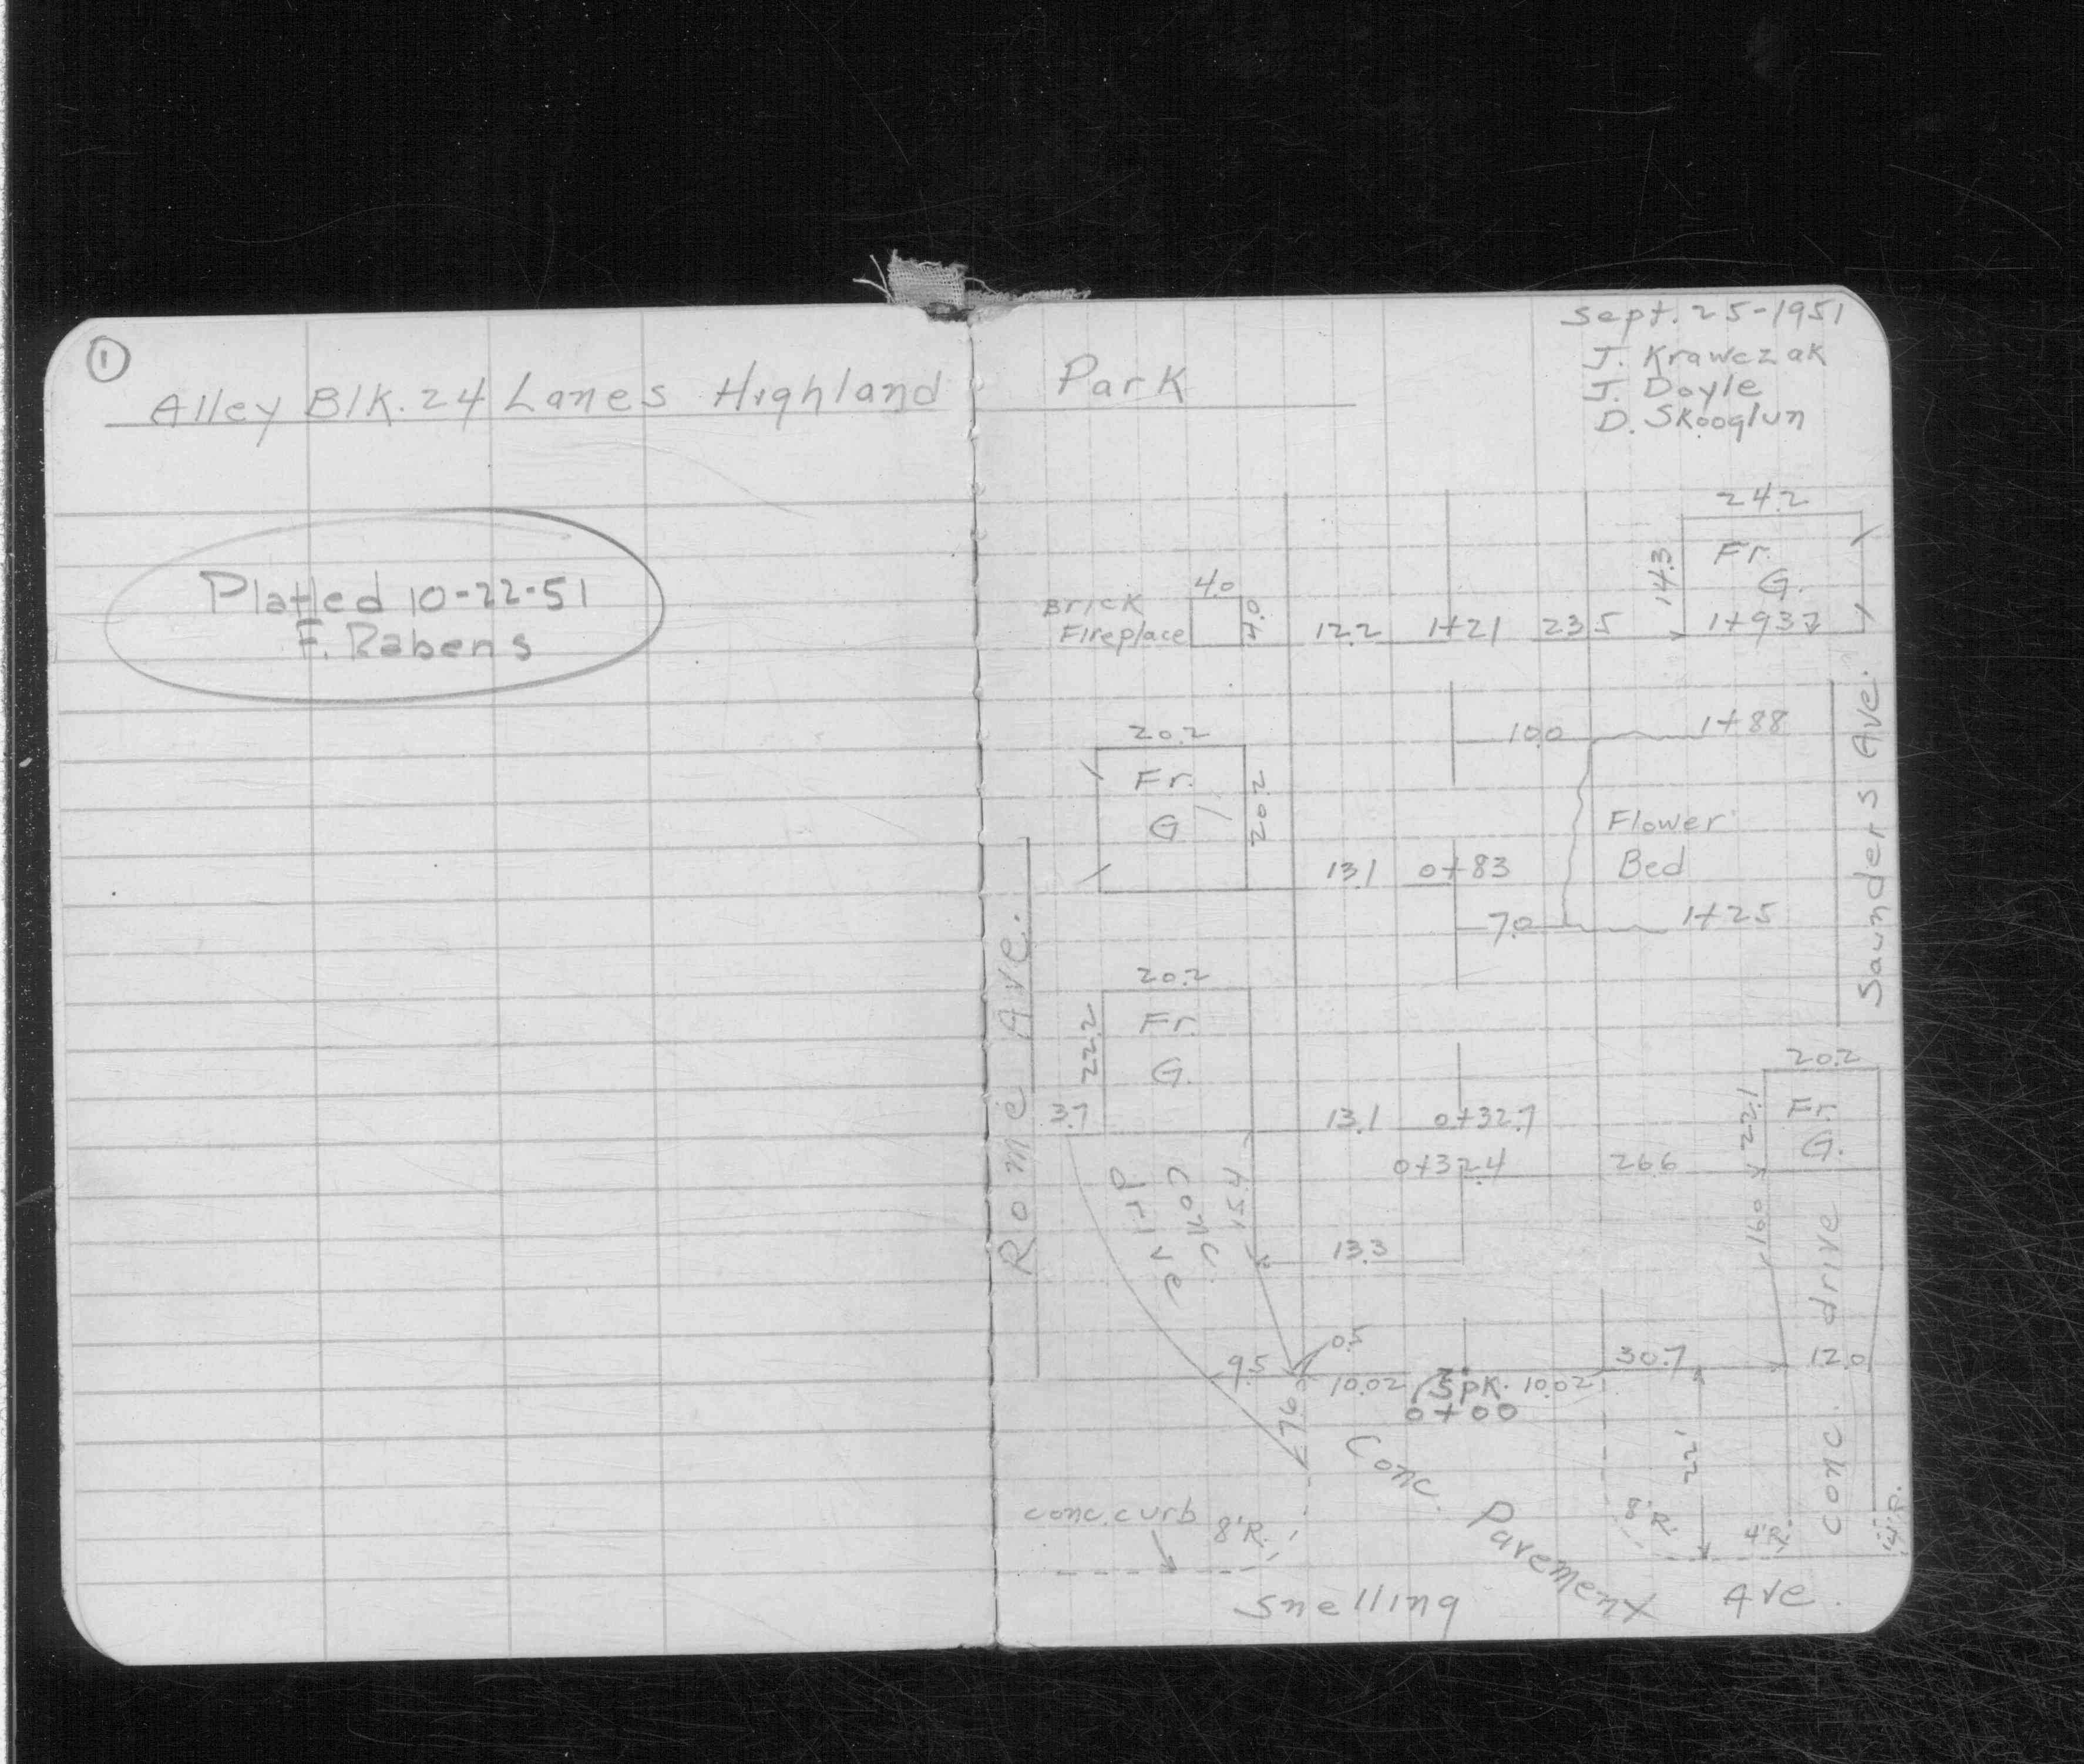 ①
Alley Blk. 24 Lanes Highland Park
Platted 10-22-51
F. Rabens
Sept. 25-1951
J. Krawczak
J. Doyle
D. Skooglun
24.2
14.3
Fr.
G.
4.0
Brick
Fireplace
4.0
12.2 1+21 23.5 1+93.7
Saunders Ave.
10.0 1+88
20.2
Fr.
G
20.2
Flower
Bed
13.1 0+83
7.0 1+25
Rome Ave.
20.2
22.2
Fr.
G.
20.2
22.1
Fr.
G.
3.7 13.1 0+32.7
0+32.4 26.6
Conc.
drive
15.4
16.0
13.3
0.5
9.5 10.02 Spk. 10.02 30.7 12.0
0+00
7.6
Conc. Pavement
22'
conc. drive
conc. curb 8'R. 8'R. 4'R. 4'R.
Snelling Ave.